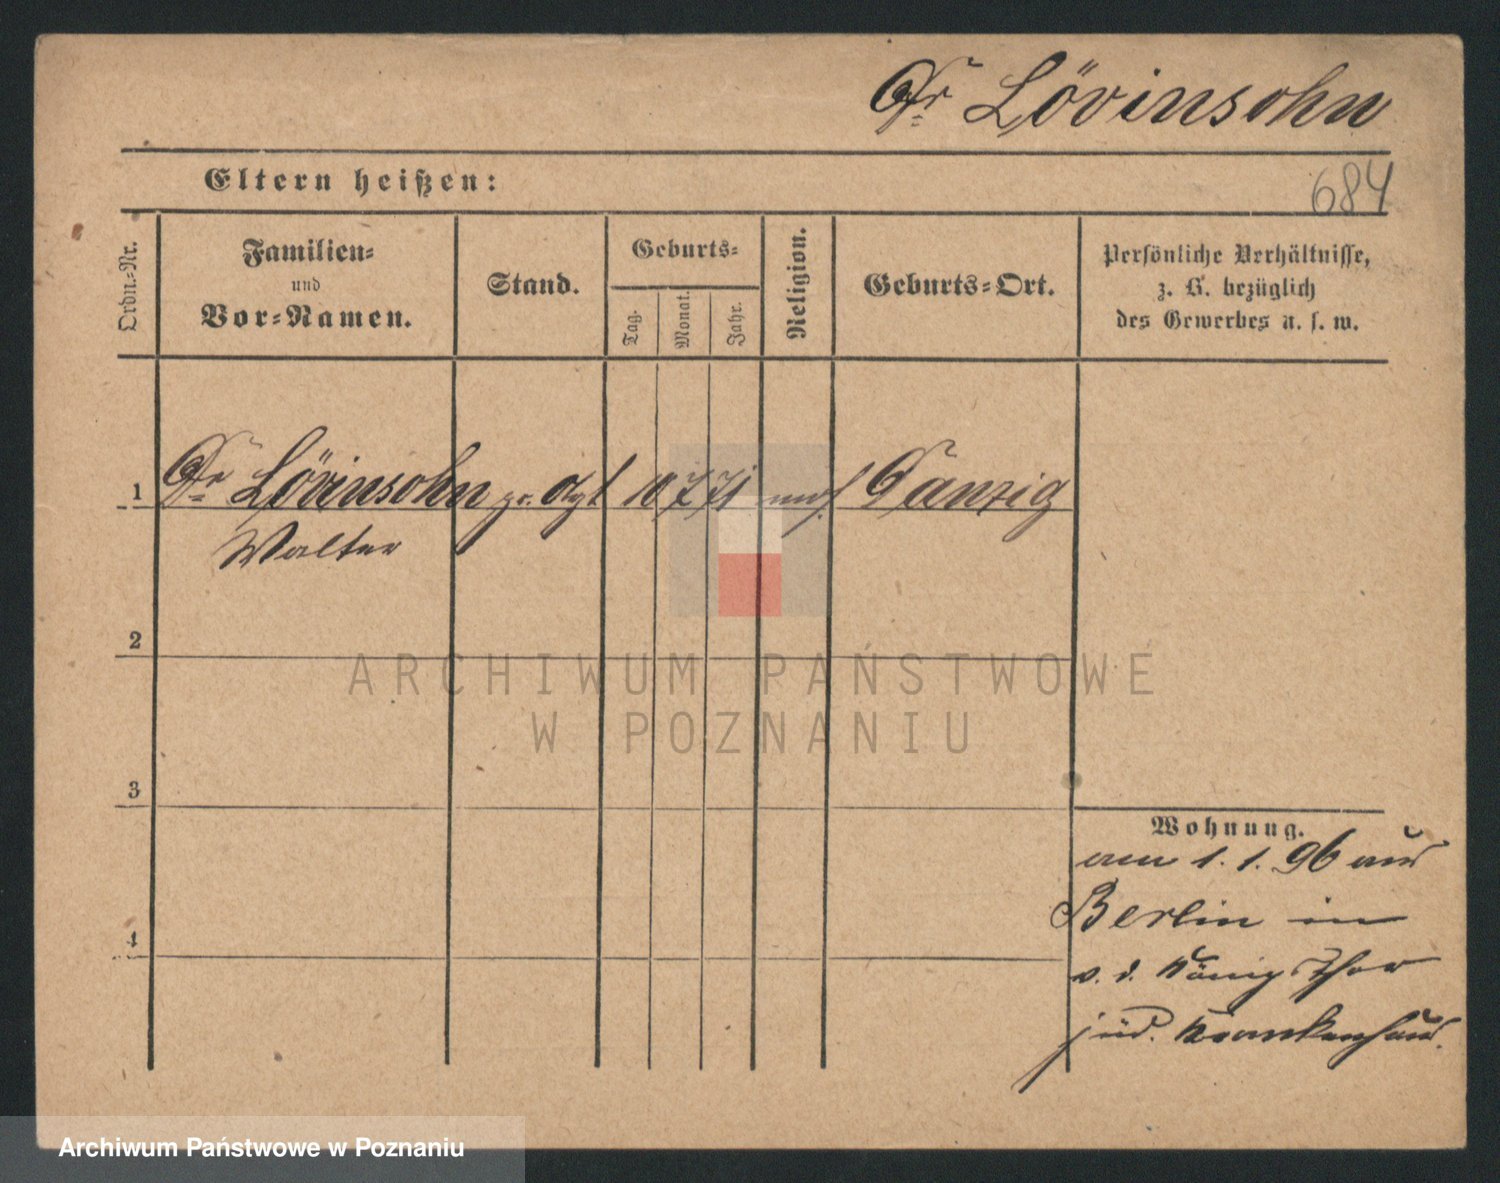 Dr Lövinsohn
Eltern heißen:
684
Ordn.-Nr.
Familien-
und
Vor-Namen.
Stand.
Geburts-
Tag.
Monat.
Jahr.
Religion.
Geburts-Ort.
Persönliche Verhältnisse,
z. B. bezüglich
des Gewerbes u. s. w.
1 Dr Lövinsohn pr. Azt 10 7 71 mos. Danzig
Walter
2
ARCHIWUM PAŃSTWOWE
W POZNANIU
3
Wohnung.
am 1. 1. 96 aus
Berlin in
v. d. König Thor
jüd. Krankenhaus.
4
Archiwum Państwowe w Poznaniu